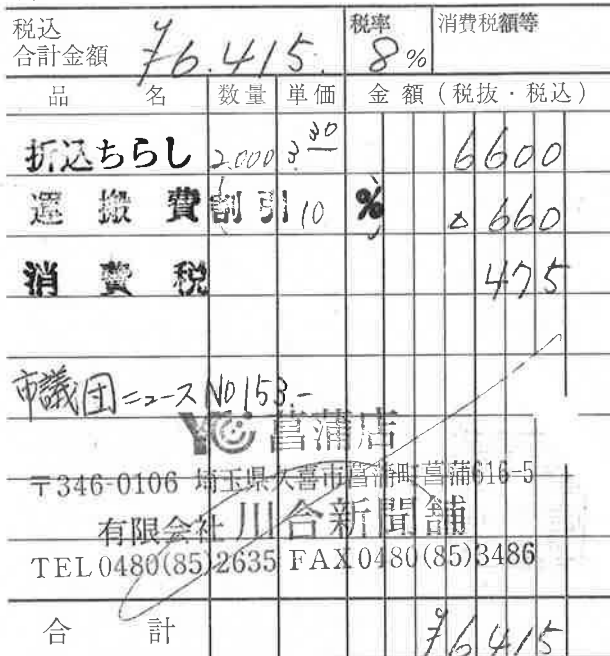 税込 合計金額 ¥6,415. 税率 8% 消費税額等
品名 数量 単価 金額(税抜・税込)
折込ちらし 2,000 3.30 6600
運搬費割引 10 % △660
消費税 475
市議団ニュース NO153.-
YC 菖蒲店
〒346-0106 埼玉県久喜市菖蒲町菖蒲616-5
有限会社 川合新聞舗
TEL 0480(85)2635 FAX 0480(85)3486
合計 ¥6415